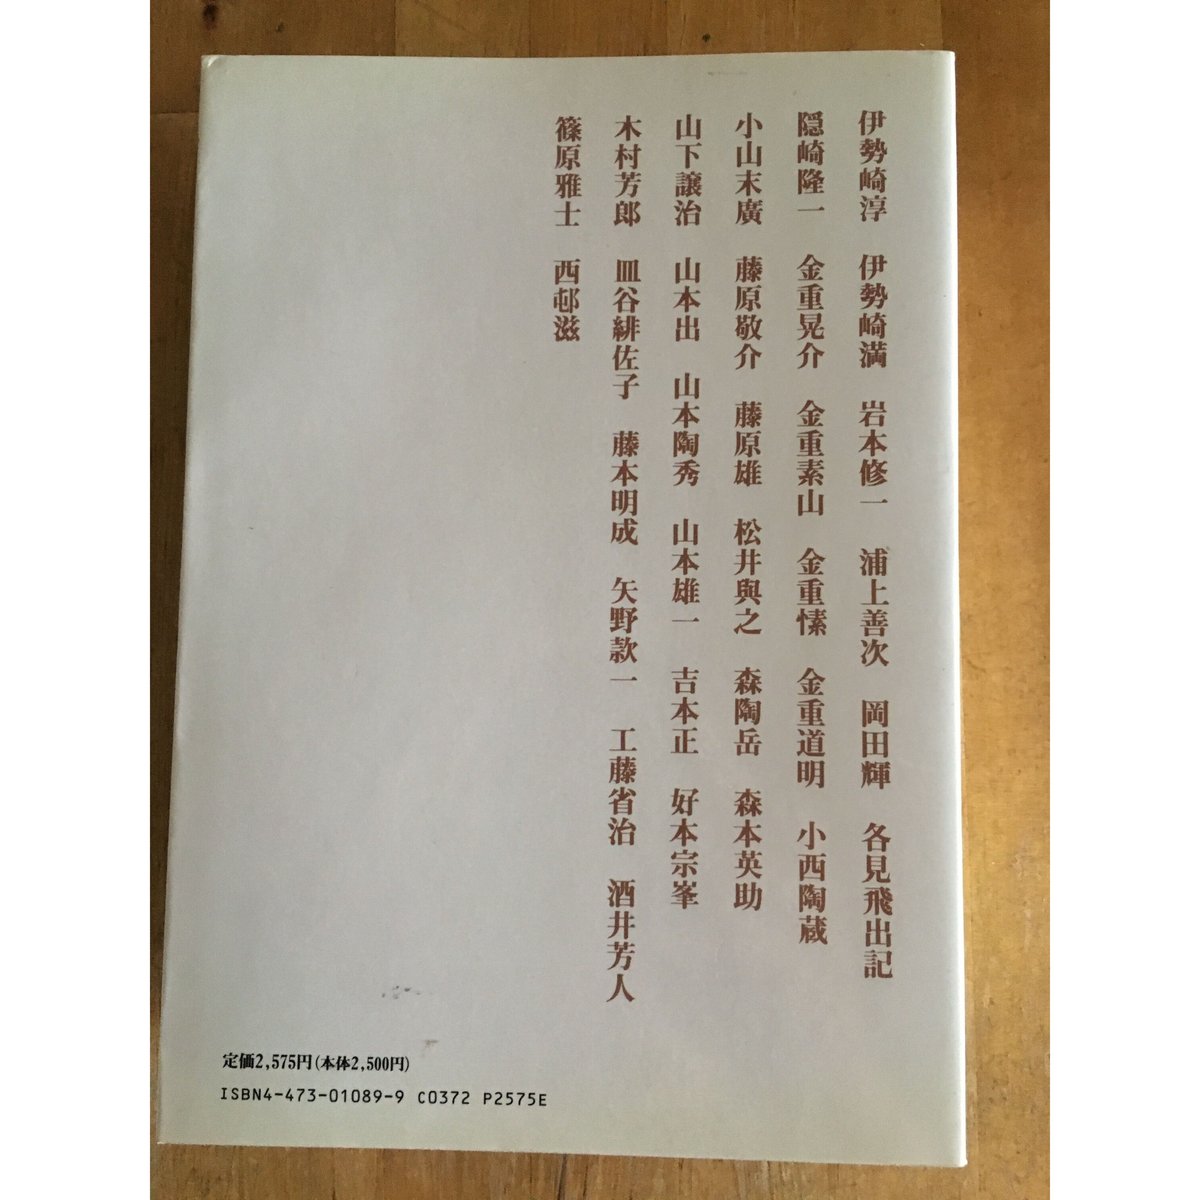 伊勢崎淳 伊勢崎満 岩本修一 浦上善次 岡田輝 各見飛出記
隠崎隆一 金重晃介 金重素山 金重愫 金重道明 小西陶蔵
小山末廣 藤原敬介 藤原雄 松井與之 森陶岳 森本英助
山下譲治 山本出 山本陶秀 山本雄一 吉本正 好本宗峯
木村芳郎 皿谷緋佐子 藤本明成 矢野款一 工藤省治 酒井芳人
篠原雅士 西邨滋
定価2,575円(本体2,500円)
ISBN4-473-01089-9 C0372 P2575E